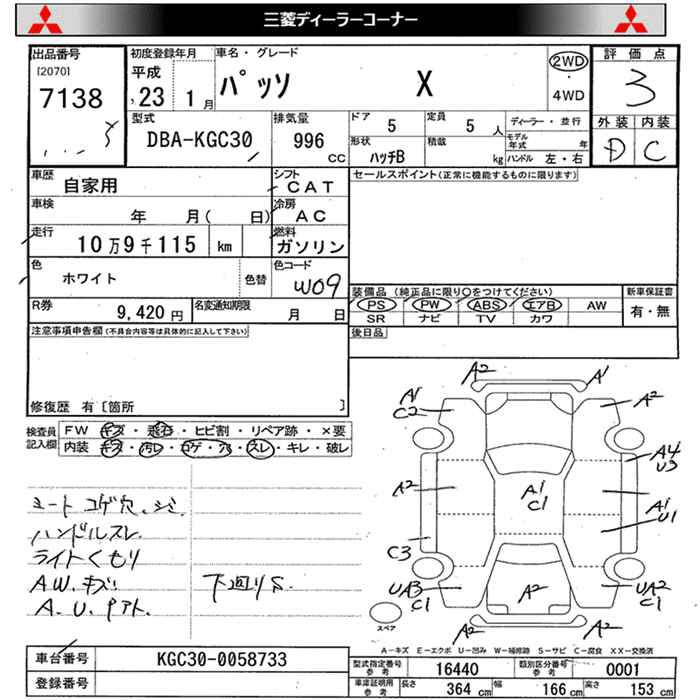 三菱ディーラーコーナー
出品番号 初度登録年月 車名・グレード 評価点
[2070] 平成 パッソ X 2WD 3
7138 23年 1月 ・4WD
型式 排気量 ドア 定員 ディーラー・並行 外装 内装
DBA-KGC30 996 cc 5 5人 モデル年式 年 D C
形状 積載 ハンドル 左・右
ハッチB kg
車歴 自家用 シフト CAT セールスポイント(正常に機能するものに限ります)
車検 年 月( 日) 冷房 AC
走行 10万9千115 km 燃料 ガソリン
色 ホワイト 色替 色コード W09
装備品 (純正品に限り○をつけてください) 新車保証書
R券 9,420円 名変通知期限 月 日 PS PW ABS エアB AW 有・無
SR ナビ TV カワ
注意事項申告欄(不具合内容等は具体的に記入して下さい) 後日品
修復歴 有 [箇所 ]
検査員記入欄 FW キズ・飛石・ヒビ割・リペア跡・×要
内装 キズ・汚れ・コゲ・穴・スレ・キレ・破レ
シートコゲ穴、シミ
ハンドルスレ
ライトくもり
A.W.キズ 下廻りS
A.U.Pアト.
A2 A1
A1 C2 A2
A4 U3
A2 A1 C1 A1 U1
C3
UA3 C1 A2 UA2 C1
A2
スペア
A-キズ E-エクボ U-凹み W-補修跡 S-サビ C-腐食 XX-交換済
車台番号 KGC30-0058733 型式指定番号 参考 16440 類別区分番号 参考 0001
登録番号 車庫証明用 参考 長さ 364 cm 幅 166 cm 高さ 153 cm